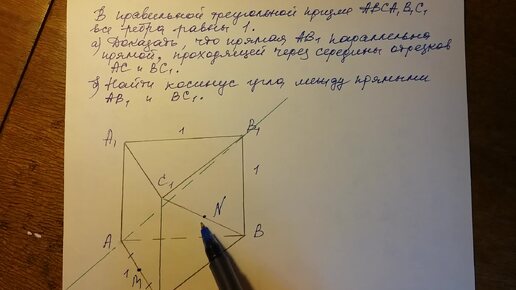 В правильной треугольной призме ABCA₁B₁C₁
все ребра равны 1.
а) Доказать, что прямая AB₁ параллельна
прямой, проходящей через середины отрезков
AC и BC₁.
б) Найти косинус угла между прямыми
AB₁ и BC₁.
A₁
1
B₁
C₁
1
N
A
B
1
M